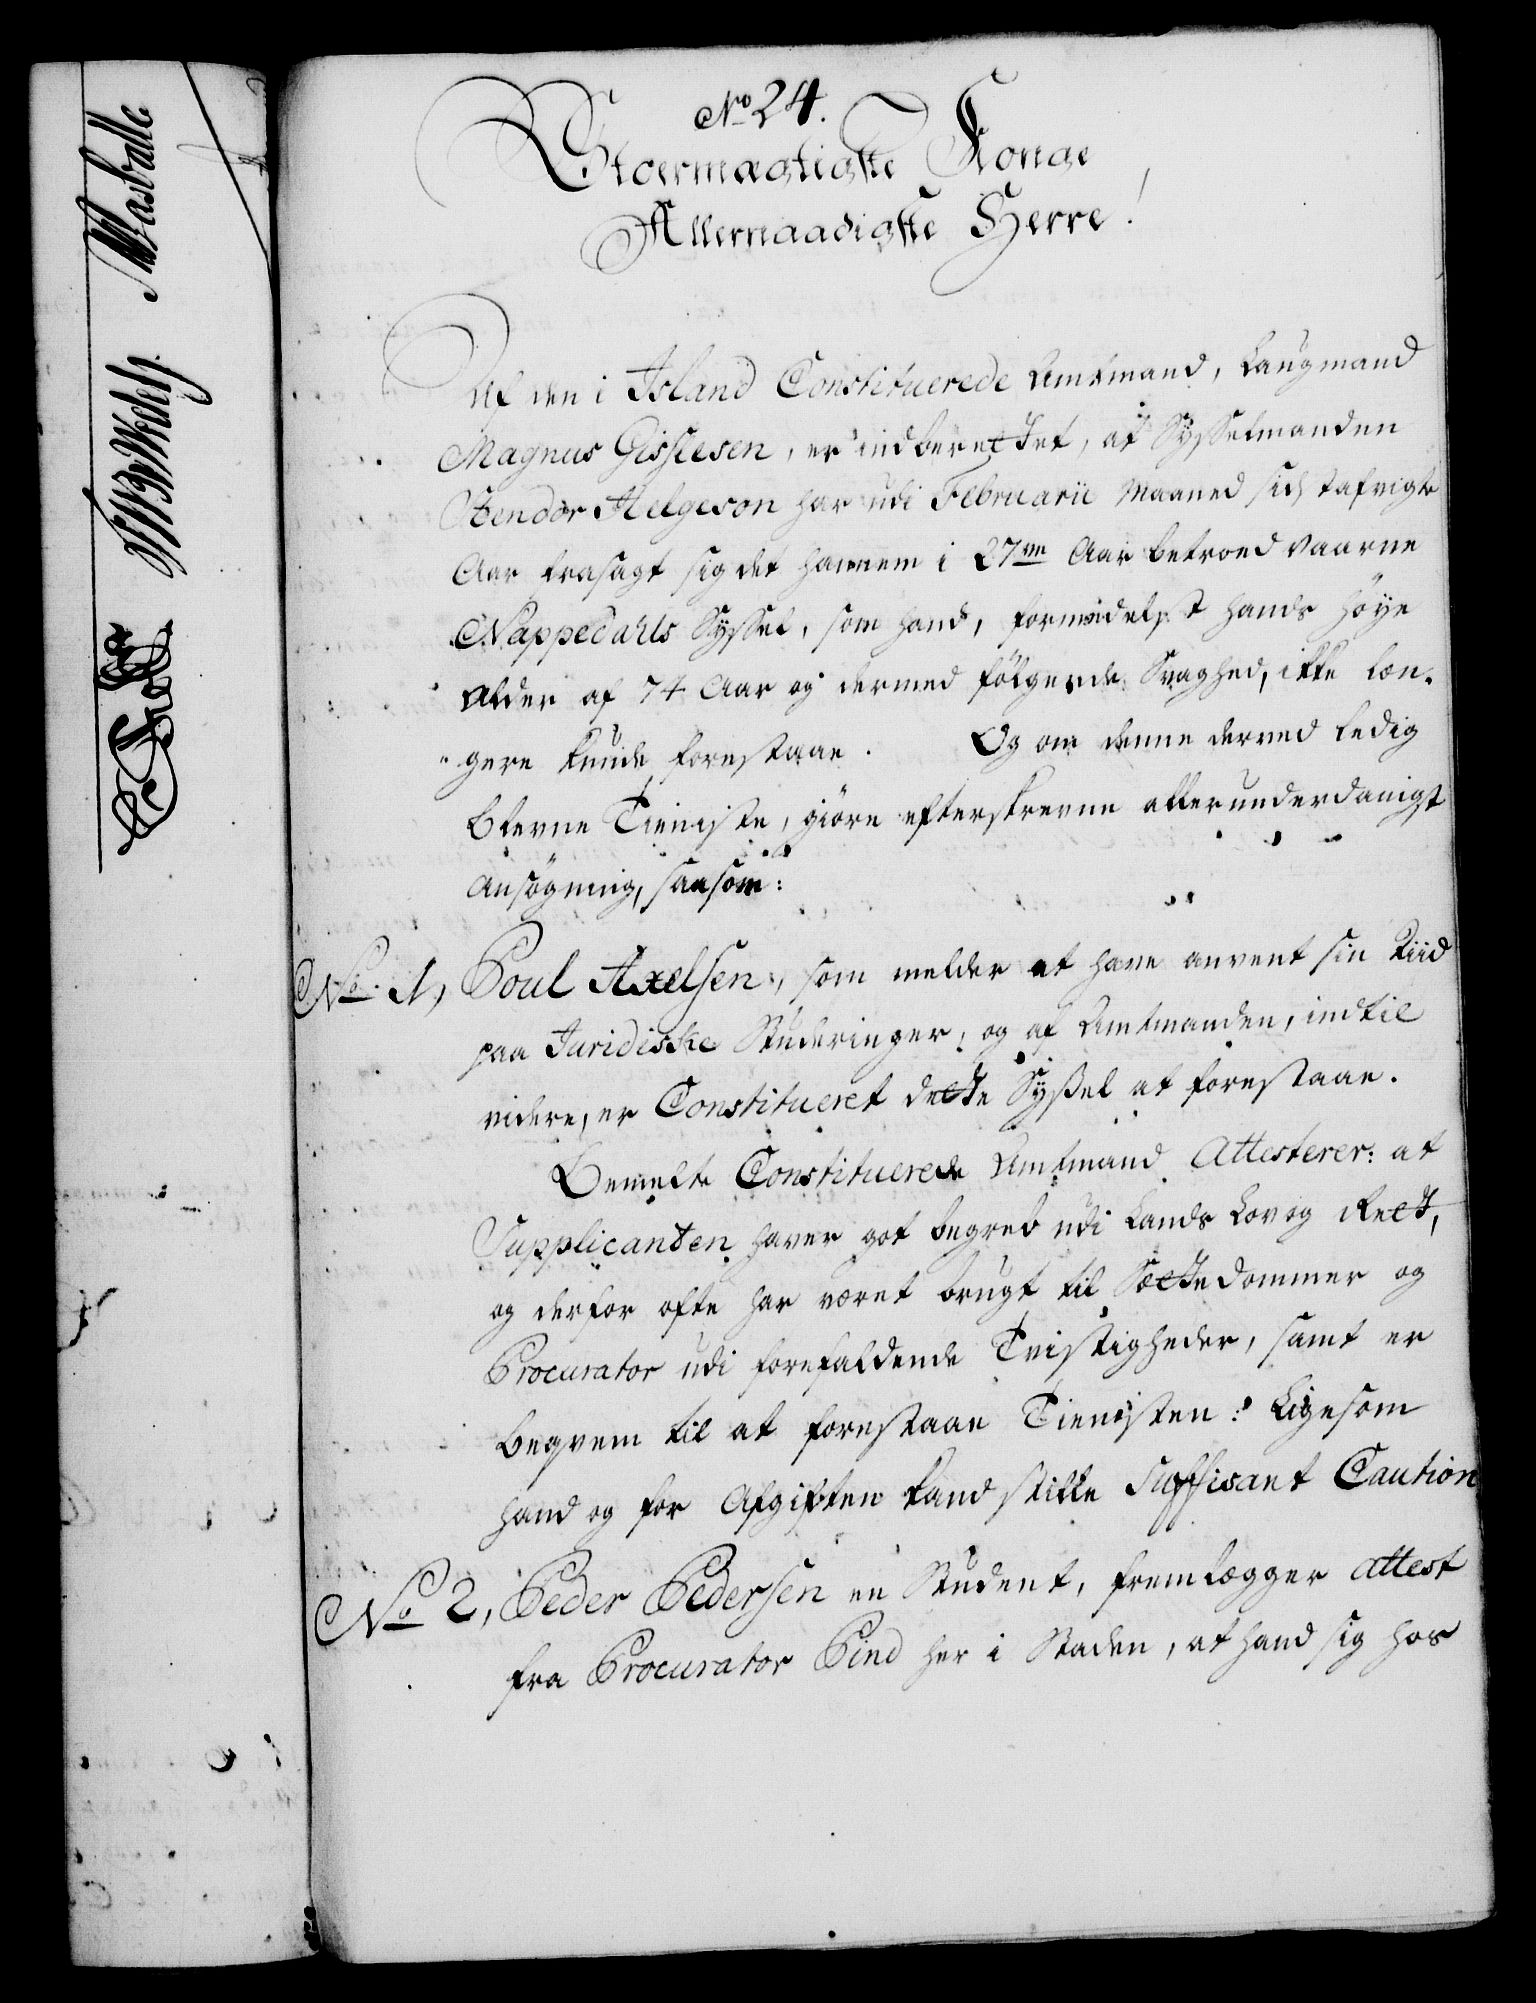 No 24.
Stoermægtigste Konge,
Allernaadigste Herre!
Af den i Island Constituerede Amtmand, Laugmand
Magnus Gislesen, er indberettet, at Sysselmanden
Sendor Helgeson har udi Februarii Maaned sidstafvigte
Aar frasagt sig det hannem i 27ve Aar betroed vaarne
Nappedahls Syssel, som hand, formedelst hands høye
Alder af 74 Aar og dermed følgende Svaghed, ikke læn-
gere kunde forestaae. Og om denne derved ledig
blevne Tieniste, giøre efterskrevne allerunderdanigst
Ansøgning, saasom:
No 1, Poul Axelsen, som melder at have anvent sin Tiid
paa Juridiske Studeringer, og af Amtmanden, indtil
videre, er Constitueret dette Syssel at forestaae.
Bemelte Constituerede Amtmand Attesterer: at
Supplicanten haver got begreb udi Lands Lov og Rett,
og derfor ofte har været brugt til Sættedommer og
Procurator udi forefaldende Tvistigheder, samt er
beqvem til at forestaae Tienisten: Ligesom
hand og for Afgiften kand stille suffisant Caution
No 2, Peder Pedersen en Student, fremlægger attest
fra Procurator Pind her i Staden, at hand sig hos